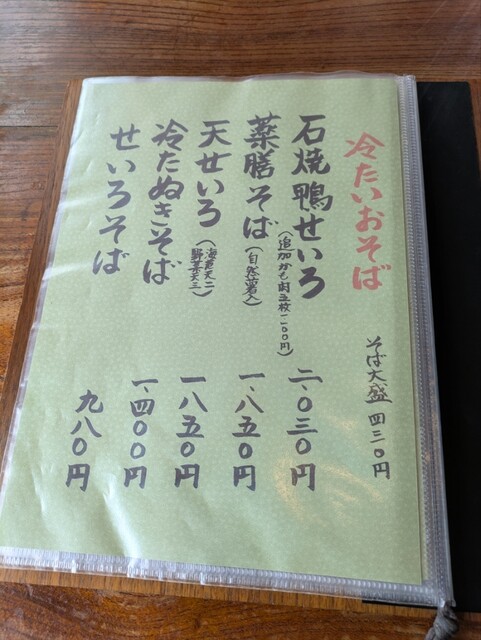 冷たいおそば
そば大盛 四三〇円
石焼鴨せいろ
(追加かも肉五枚一、一〇〇円)
二、〇三〇円
薬膳そば
(自然薯入)
一、八五〇円
天せいろ
(海老天二
野菜天三)
一、八五〇円
冷たぬきそば
一、四〇〇円
せいろそば
九八〇円